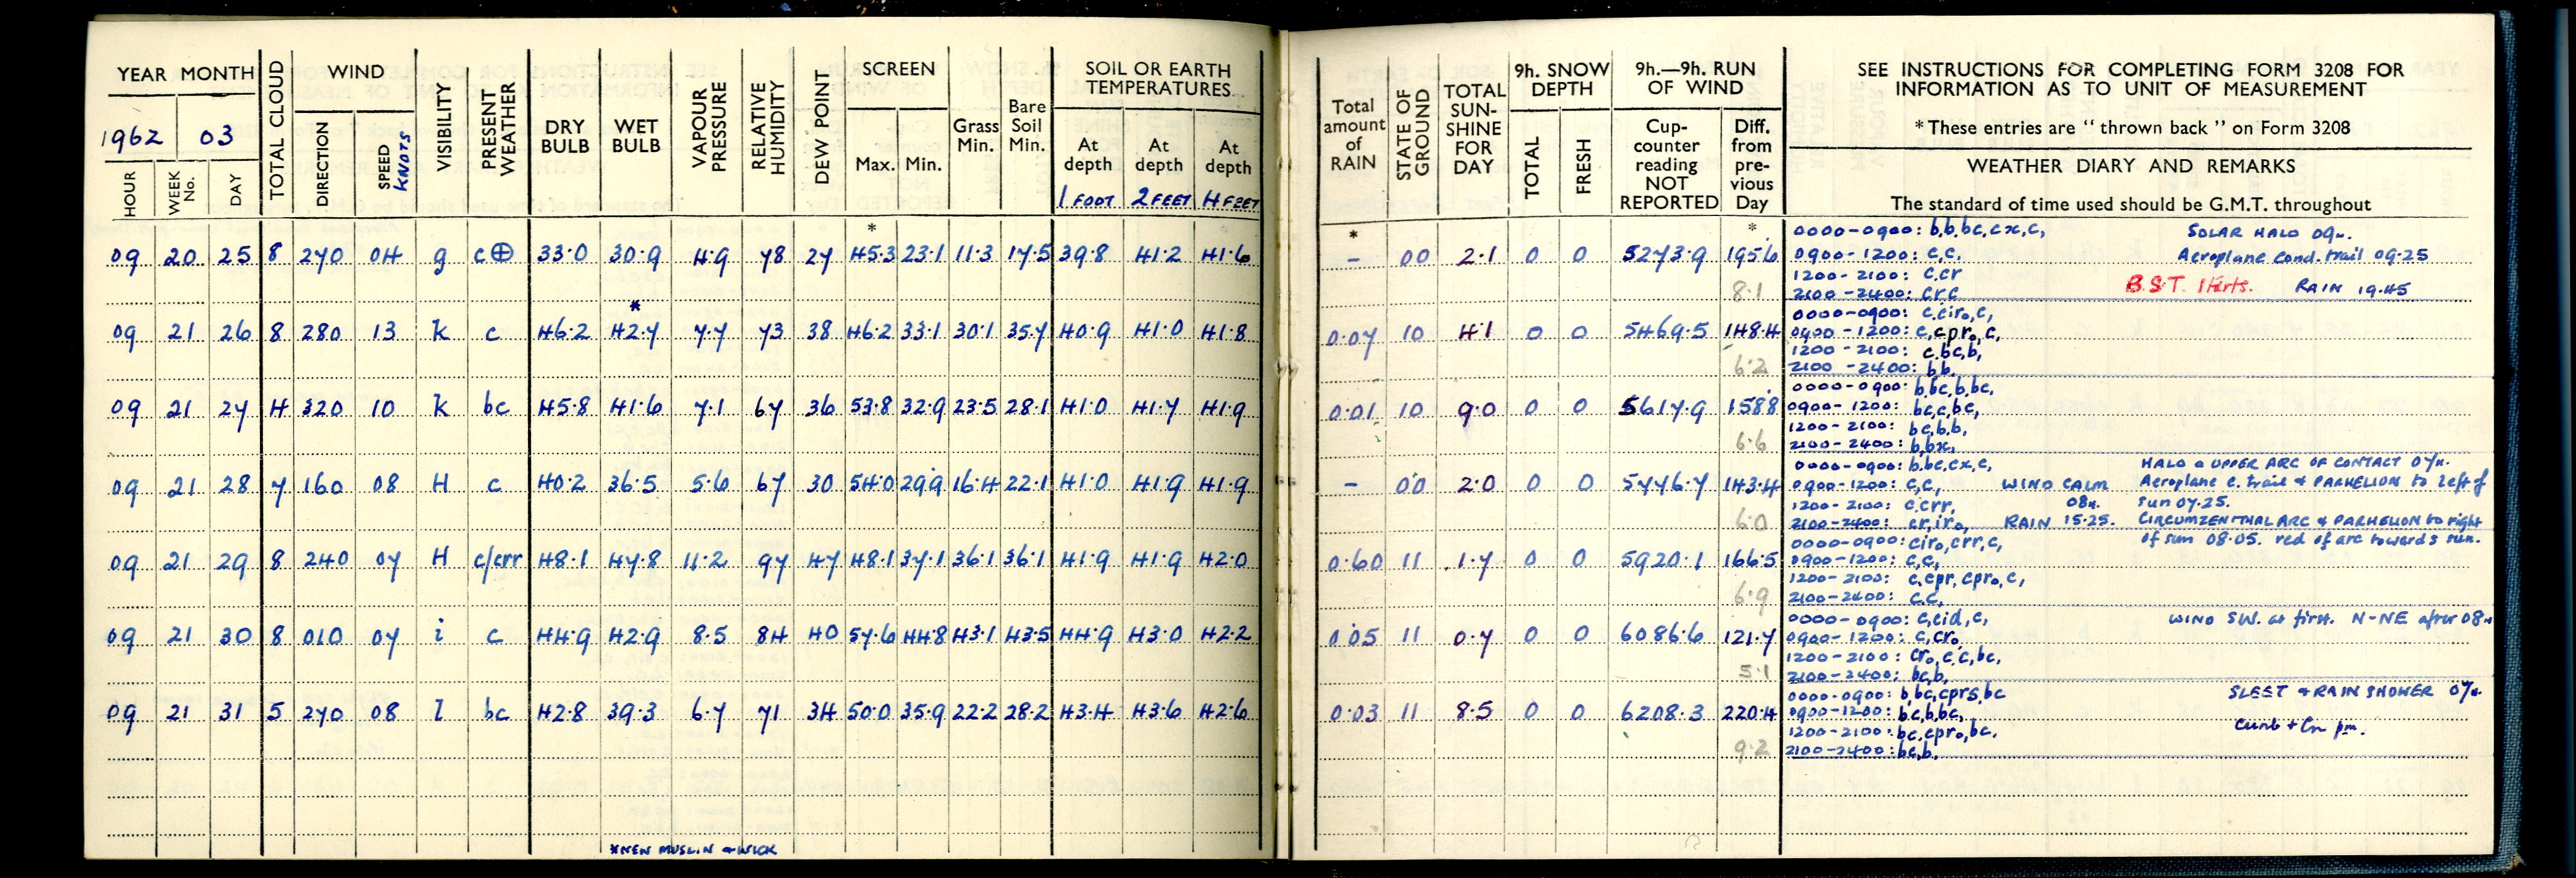 YEAR MONTH
1962 03
HOUR WEEK No. DAY
TOTAL CLOUD
WIND
DIRECTION SPEED KNOTS
VISIBILITY
PRESENT WEATHER
DRY BULB
WET BULB
VAPOUR PRESSURE
RELATIVE HUMIDITY
DEW POINT
SCREEN
Max. Min.
Grass Min.
Bare Soil Min.
SOIL OR EARTH TEMPERATURES
At depth 1 FOOT
At depth 2 FEET
At depth 4 FEET
*
09 20 25 8 270 04 g c⊕ 33.0 30.9 4.9 78 27 45.3 23.1 11.3 17.5 39.8 41.2 41.6
*
09 21 26 8 280 13 k c 46.2 42.7 7.7 73 38 46.2 33.1 30.1 35.7 40.9 41.0 41.8
09 21 27 4 320 10 k bc 45.8 41.6 7.1 67 36 53.8 32.9 23.5 28.1 41.0 41.7 41.9
09 21 28 7 160 08 H c 40.2 36.5 5.6 67 30 54.0 29.9 16.4 22.1 41.0 41.9 41.9
09 21 29 8 240 07 H c/crr 48.1 47.8 11.2 97 47 48.1 37.1 36.1 36.1 41.9 41.9 42.0
09 21 30 8 010 07 i c 44.9 42.9 8.5 84 40 57.6 44.8 43.1 43.5 44.9 43.0 42.2
09 21 31 5 270 08 l bc 42.8 39.3 6.7 71 34 50.0 35.9 22.2 28.2 43.4 43.6 42.6
*NEW MUSLIN & WICK
Total amount of RAIN
STATE OF GROUND
TOTAL SUN-SHINE FOR DAY
9h. SNOW DEPTH
TOTAL FRESH
9h.—9h. RUN OF WIND
Cup-counter reading NOT REPORTED
Diff. from pre-vious Day
SEE INSTRUCTIONS FOR COMPLETING FORM 3208 FOR
INFORMATION AS TO UNIT OF MEASUREMENT
* These entries are “ thrown back ” on Form 3208
WEATHER DIARY AND REMARKS
The standard of time used should be G.M.T. throughout
* *
0000-0900: b,b,bc,cx,c, SOLAR HALO 09h.
- 00 2.1 0 0 5273.9 195.6 0900-1200: c,c. Aeroplane Cond. trail 09.25
1200-2100: c,cr
8.1 2100-2400: crc B.S.T. starts. RAIN 19.45
0000-0900: c,ciro,c,
0.07 10 4.1 0 0 5469.5 148.4 0900-1200: c,cpro,c,
1200-2100: c,bc,b,
6.2 2100-2400: bb.
0000-0900: b,bc,b,bc,
0.01 10 9.0 0 0 5617.9 158.8 0900-1200: bc,c,bc,
1200-2100: bc,b,b,
6.6 2100-2400: b,bx,
0000-0900: b,bc,cx,c, HALO & UPPER ARC OF CONTACT 07h.
- 00 2.0 0 0 5776.7 143.4 0900-1200: c,c, WIND CALM 08h. Aeroplane c. trail & PARHELION to left of
1200-2100: c,crr, sun 07.25.
6.0 2100-2400: cr,iro, RAIN 15.25. CIRCUMZENITHAL ARC & PARHELION to right
0000-0900: ciro,crr,c, of sun 08.05. red of arc towards sun.
0.60 11 1.7 0 0 5920.1 166.5 0900-1200: c,c,
1200-2100: c,cpr,cpro,c,
6.9 2100-2400: c,c,
0000-0900: c,cid,c, WIND SW. at first. N-NE after 08h
0.05 11 0.7 0 0 6086.6 121.7 0900-1200: c,cro
1200-2100: cro,c,c,bc,
5.1 2100-2400: bc,b,
0000-0900: b,bc,cprs,bc SLEET & RAIN SHOWER 07h.
0.03 11 8.5 0 0 6208.3 220.4 0900-1200: bc,b,bc,
1200-2100: bc,cpro,bc, Cunb + Cn pm.
9.2 2100-2400: bc,b,